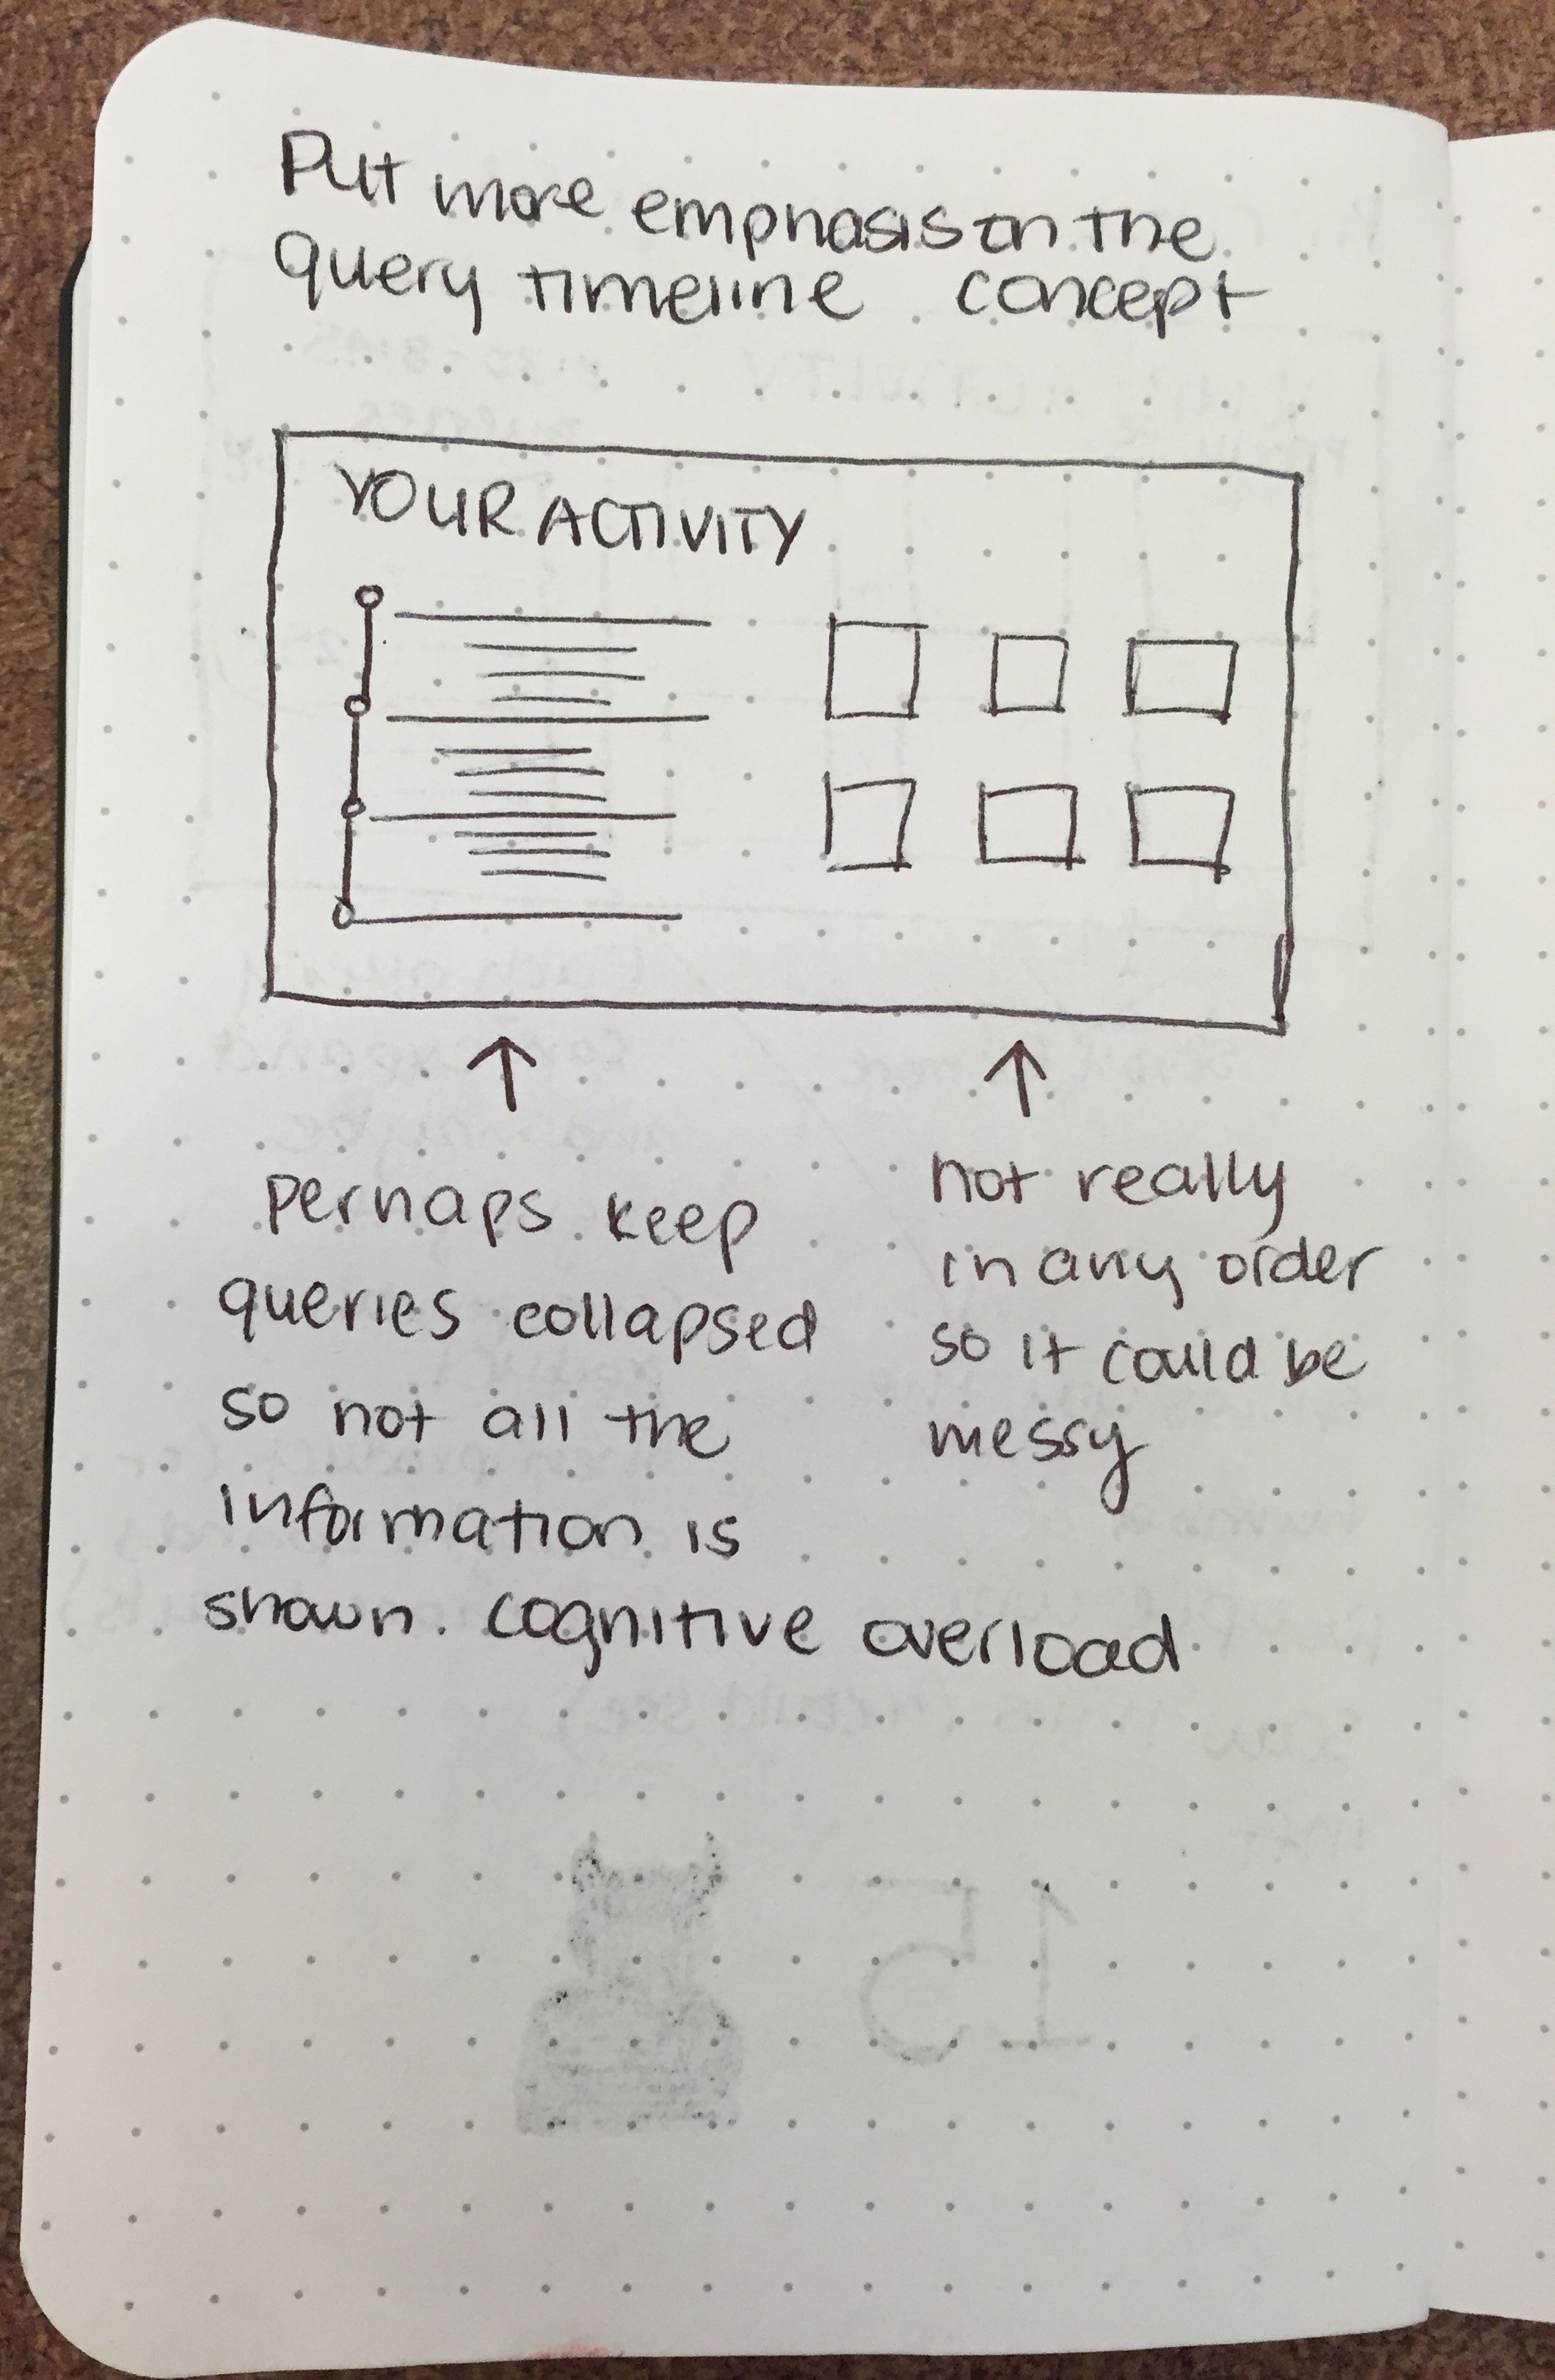 Put more emphasis on the
query timeline concept
YOUR ACTIVITY
perhaps keep
queries collapsed
so not all the
information is
shown. cognitive overload
not really
in any order
so it could be
messy
15